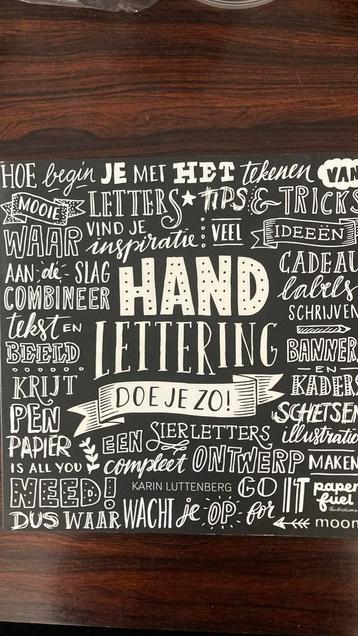 HOE begin JE MET HET tekenen VAN
MOOIE LETTERS TIPS & TRICKS
WAAR VIND JE inspiratie: VEEL IDEEËN
AAN de SLAG
COMBINEER
tekst EN
BEELD
KRIJT
PEN
PAPIER
IS ALL YOU
NEED!
HAND
LETTERING
DOE JE ZO!
CADEAU
labels
SCHRIJVEN
BANNER
EN
KADERS
SCHETSEN
illustratie
EEN SIERLETTERS
compleet ONTWERP MAKEN
KARIN LUTTENBERG
DUS WAAR WACHT je OP
GO for IT
paper
fuel
moon